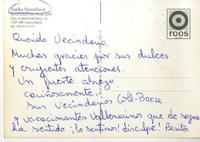 roos
Querido Vecindario,
Muchas gracias por sus dulces
y crujientes atenciones.
Un fuerte abrazo
cariñosamente:
Sus Vecindarios Colé-Baeza
y vacacionantes Vallerainos que de seguro
ha sentido ¡lo sentimos! disculpe! Besitos